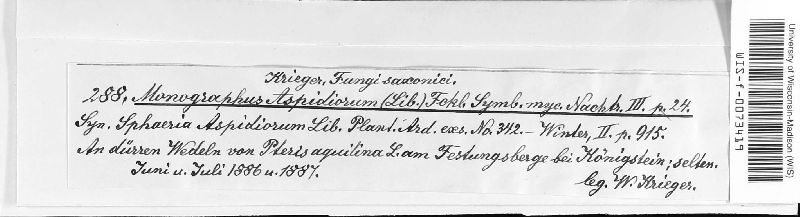 Krieger, Fungi saxonici.
288. Monographus Aspidiorum (Lib.) Fckl. Symb. myc. Nachtr. III. p. 24.
Syn. Sphaeria Aspidiorum Lib. Plant. Ard. exs. No. 342. – Winter, II. p. 915.
An dürren Wedeln von Pteris aquilina L. am Festungsberge bei Königstein; selten.
Juni u. Juli 1886 u. 1887.
leg. W. Krieger.
University of Wisconsin-Madison (WIS)
WIS-f-0073419